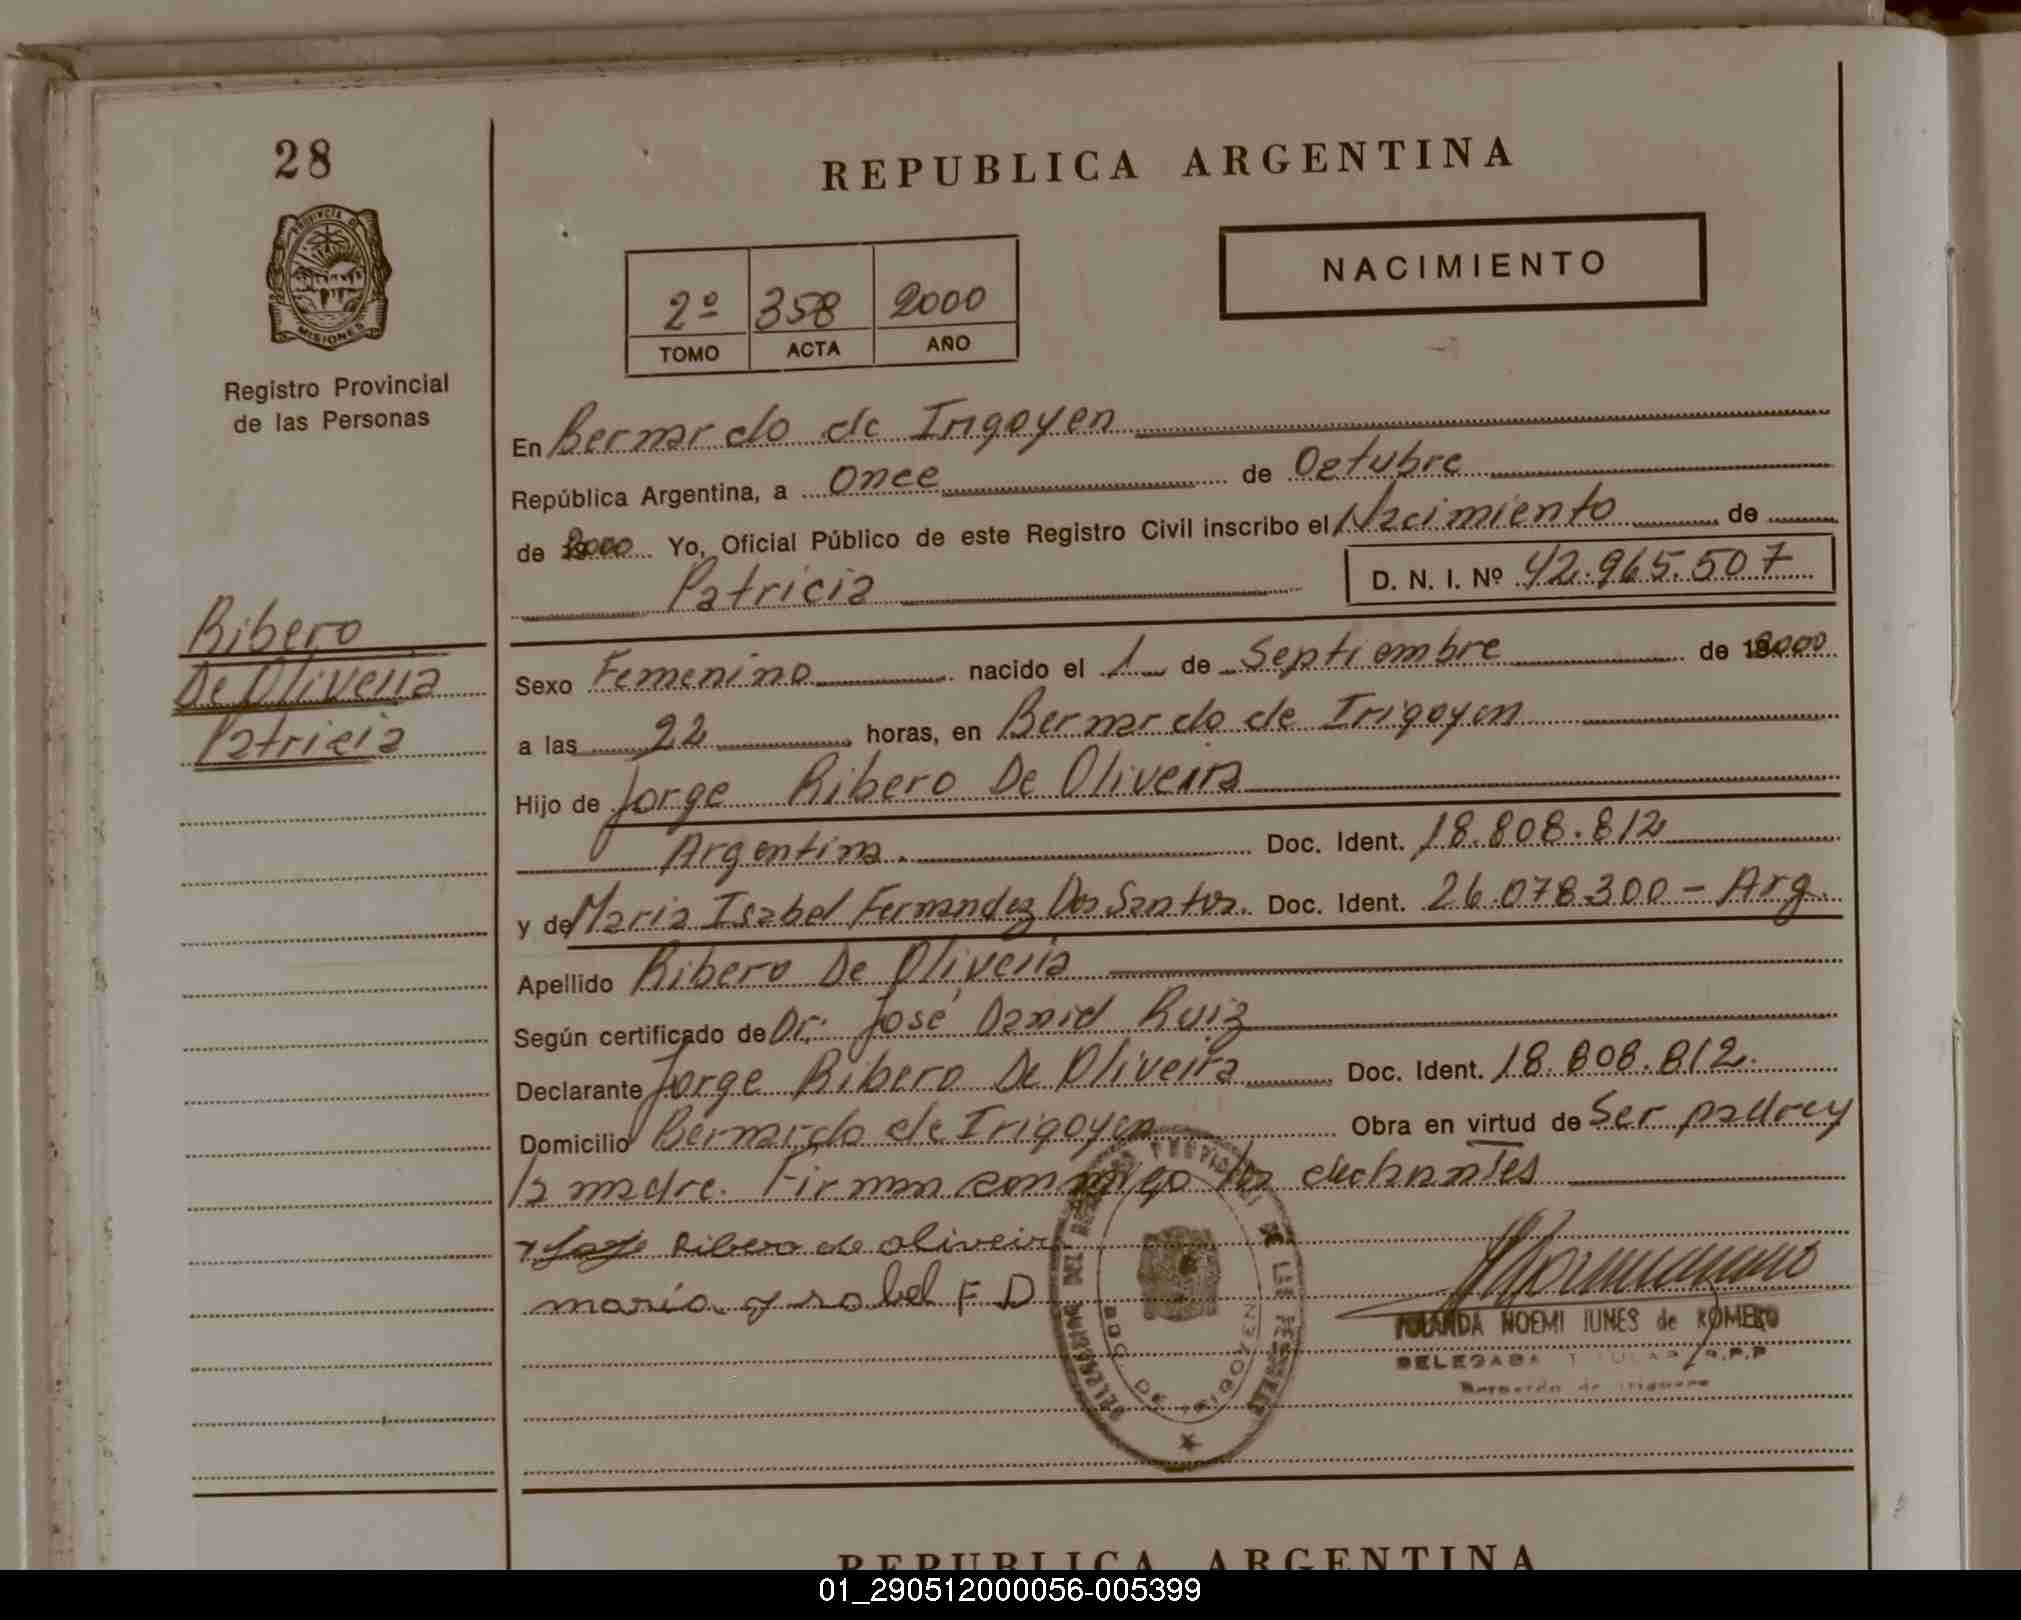 28
PROVINCIA DE
MISIONES
Registro Provincial
de las Personas
Ribero
De Oliveira
Patricia
REPUBLICA ARGENTINA
NACIMIENTO
2º 358 2000
TOMO ACTA AÑO
En Bernardo de Irigoyen
República Argentina, a Once de Octubre
de 2000 Yo, Oficial Público de este Registro Civil inscribo el Nacimiento de
Patricia D. N. I. Nº 42.965.507
Sexo Femenino nacido el 1 de Septiembre de 2000
a las 22 horas, en Bernardo de Irigoyen
Hijo de Jorge Ribero De Oliveira
Argentina. Doc. Ident. 18.808.812
y de Maria Isabel Fernandez Dos Santos. Doc. Ident. 26.078.300 - Arg.
Apellido Ribero De Oliveira
Según certificado de Dr: José Daniel Ruiz
Declarante Jorge Ribero De Oliveira Doc. Ident. 18.808.812.
Domicilio Bernardo de Irigoyen Obra en virtud de Ser padre y
la madre. Firman conmigo los declarantes
Ribero de oliveira
maria ysabel F D
DEL DE LAS PERSONAS
BDO. DE IRIGOYEN
YOLANDA NOEMI IUNES de ROMERO
DELEGADA TITULAR R.P.P
Bernardo de Irigoyen
REPUBLICA ARGENTINA
01_290512000056-005399